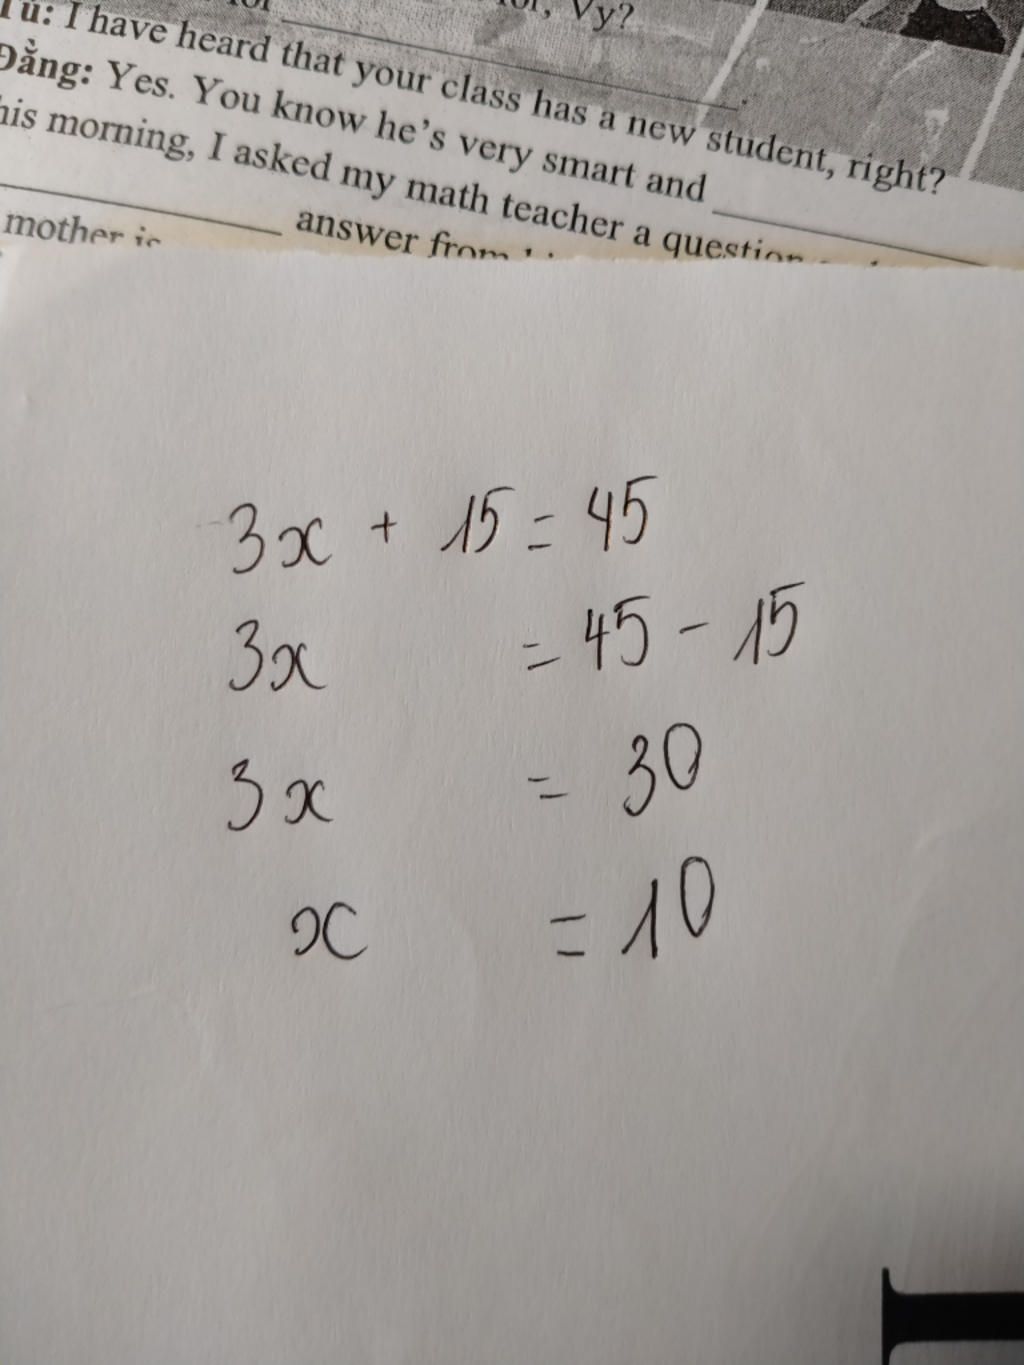 Vy?
Tú: I have heard that your class has a new student, right?
Đằng: Yes. You know he's very smart and
his morning, I asked my math teacher a question
answer from
mother is
3x + 15 = 45
3x = 45 - 15
3x = 30
x = 10